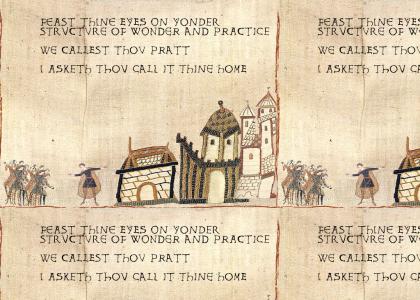 FEAST THINE EYES ON YONDER
STRVCTVRE OF WONDER AND PRACTICE
WE CALLEST THOV PRATT
I ASKETH THOV CALL IT THINE HOME
FEAST THINE EYES
STRVCTVRE OF
WE CALLEST THOV
I ASKETH THOV CALL
FEAST THINE EYES ON YONDER
STRVCTVRE OF WONDER AND PRACTICE
WE CALLEST THOV PRATT
I ASKETH THOV CALL IT THINE HOME
FEAST THINE EYES
STRVCTVRE OF
WE CALLEST THOV
I ASKETH THOV CALL